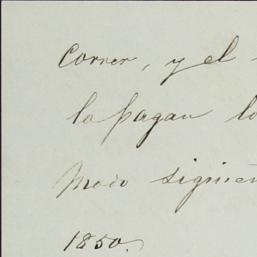 Correr, y el
lo pagan lo
Mozo siguien
1850.